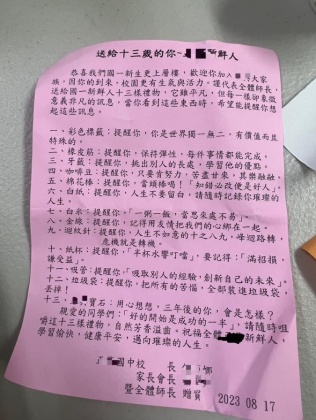 送給十三歲的你~ 新鮮人
恭喜我們國一新生更上層樓，歡迎你加入 大家
族，因你的到來，校園更有生氣與活力。謹代表全體師長，
送給國一新鮮人十三樣禮物，它雖平凡，但每一樣卻象徵
意義非凡的訊息，當你看到這些東西時，希望能提醒你想
起這些訊息。
一、彩色標籤：提醒你，你是世界獨一無二，有價值而且
特殊的。
二、橡皮筋：提醒你，保持彈性，每件事情都能完成。
三、牙籤：提醒你，挑出別人的長處，學習他的優點。
四、咖啡豆：提醒你，只要肯努力，苦盡甘來，其樂融融。
五、棉花棒：提醒你，當頭棒喝！「知錯必改便是好人」。
六、白紙：提醒你，人生不要留白，請隨時記錄你璀璨的
人生。
七、白米：提醒你，「一粥一飯，當思來處不易」。
八、金線：提醒你，記得用友情把我們的心綁在一起。
九、迴紋針：提醒你，人生不如意的十之八九，峰迴路轉，
危機就是轉機。
十、紙杯：提醒你「半杯水響叮噹」，要記得：「滿招損，
謙受益」。
十一、吸管：提醒你「吸取別人的經驗，創新自己的未來」。
十二、垃圾袋：提醒你，把所有的苦惱，全部裝進垃圾袋，
丟掉！
十三、 寶石：用心想想，三年後的你，會是怎樣？
親愛的同學們：「好的開始是成功的一半」，請隨時咀
嚼這十三樣禮物，自然芳香溢齒。祝福全體 新鮮人，
學習愉快，健康平安，邁向璀璨的人生。
國中校 長
家長會長
暨全體師長 贈賀
2023 08 17